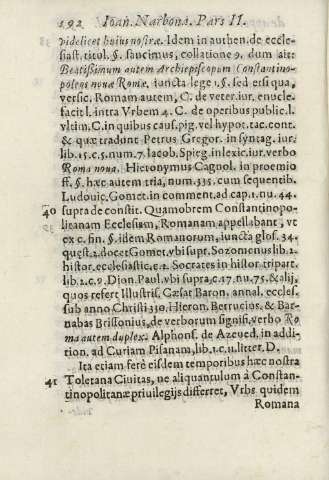 192 Ioan. Narbona. Pars II.
videlicet huius nostræ. Idem in authen. de eccle-
siast. titul. §. sancimus, collatione 9. dum ait:
Beatissimum autem Archiepiscopum Constantino-
poleos nouæ Romæ, iuncta lege 1. §. sed etsi qua,
versic. Romam autem, C. de veter. iur. enucle.
facit l. intra Vrbem 4. C. de operibus public. l.
vltim. C. in quibus caus. pig. vel hypot. tac. cont.
& quæ tradunt Petrus Gregor. in syntag. iur.
lib. 15. c. 5. num. 7. Iacob. Spieg. in lexic. iur. verbo
Roma noua, Hieronymus Cagnol. in proemio
ff. §. hæc autem tria, num. 535. cum sequentib.
Ludouic. Gomet. in comment. ad cap. 1. nu. 44.
40 supra de constit. Quamobrem Constantinopo-
litanam Ecclesiam, Romanam appellabant, vt
ex c. fin. §. idem Romanorum, iuncta glos. 34.
quæst. 2. docet Gomet. vbi supr. Sozomenus lib. 2.
histor. ecclesiastic. c. 2. Socrates in histor. tripart.
lib. 2. c. 9. Dion. Paul. vbi supra, c. 17. nu. 75. & alij,
quos refert Illustriss. Cæsar Baron. annal. eccles.
sub anno Christi 330. Hieron. Berrucios. & Bar-
nabas Brissonius, de verborum signifi. verbo Ro-
ma autem duplex. Alphons. de Azeued. in addi-
tion. ad Curiam Pisanam, lib. 1. c. 11. litter. D.
Ita etiam ferè eisdem temporibus hæc nostra
41 Toletana Ciuitas, ne aliquantulum à Constan-
tinopolitanæ priuilegijs differret, Vrbs quidem
Romana